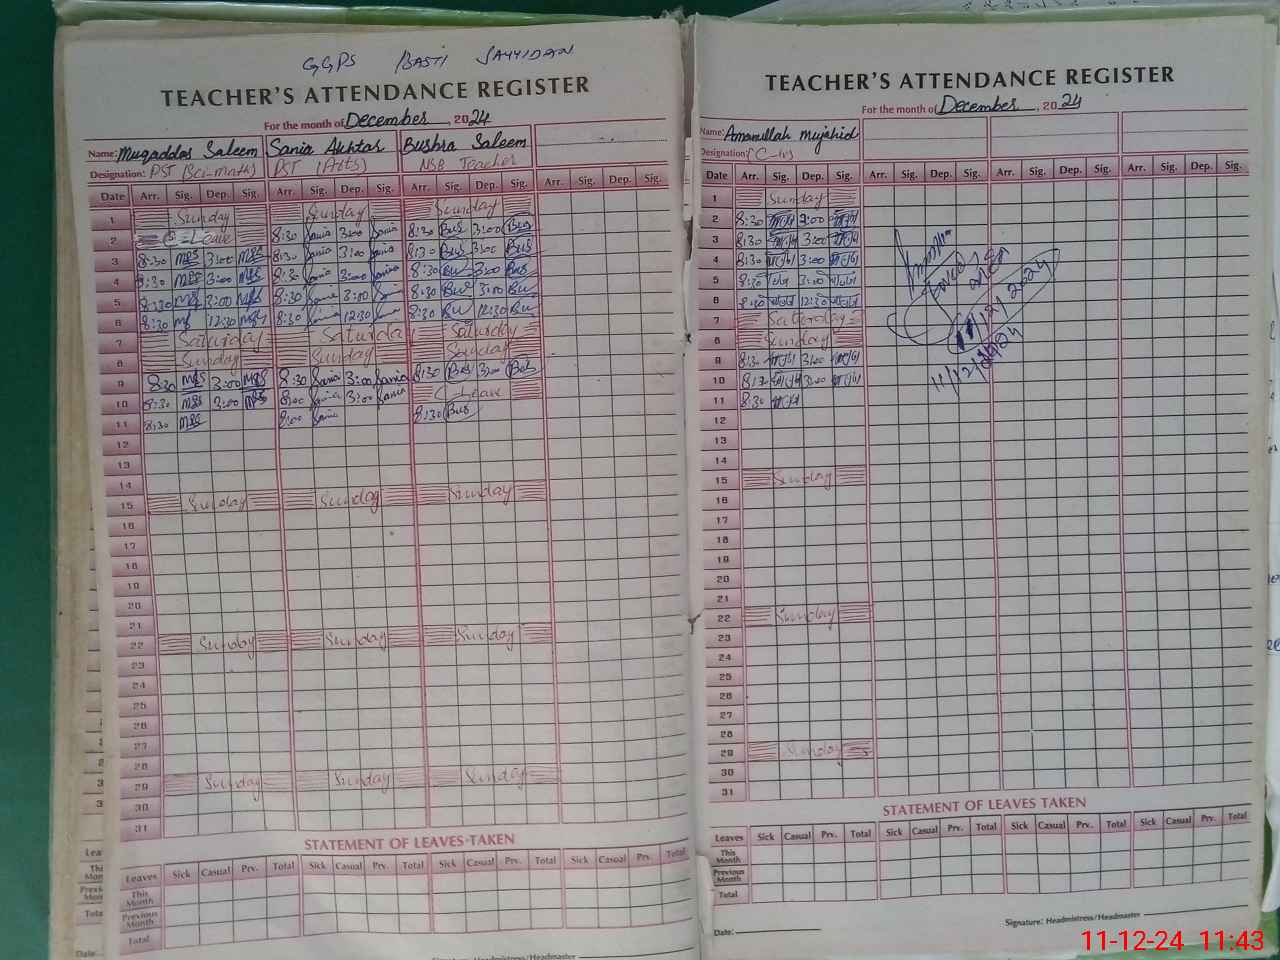 GGPS BASTI SAYYIDAN
TEACHER'S ATTENDANCE REGISTER
For the month of December, 2024
Name: Muqaddas Saleem Sania Akhtar Bushra Saleem
Designation: PST (Sci-math) PST (Arts) NSB Teacher
Date Arr. Sig. Dep. Sig. Arr. Sig. Dep. Sig. Arr. Sig. Dep. Sig. Arr. Sig. Dep. Sig.
1 Sunday Sunday Sunday
2 Leave 8:30 Sania 3:00 Sania 8:30 Bus 3:00 Bus
3 8:30 MSS 3:00 MSS 8:30 Sania 3:00 Sania 8:30 Bus 3:00 Bus
4 8:30 MSS 3:00 MSS 8:30 Sania 3:00 Sania 8:30 Bus 3:00 Bus
5 8:30 MSS 3:00 MSS 8:30 Sania 3:00 8:30 Bus 3:00 Bus
6 8:30 12:30 MSS 8:30 Sania 12:30 8:30 Bus 12:30 Bus
7 Saturday Saturda Saturday
8 Sunday Sunday Sunday
9 8:30 MSS 3:00 MSS 8:30 Sania 3:00 Sania 8:30 Bus 3:00 Bus
10 8:30 MSS 3:00 MSS 8:00 Sania 3:00 Sania C Leave
11 8:30 MSS 8:00 Sania 8:30 Bus
12
13
14
15 Sunday Sunday Sunday
16
17
18
19
20
21
22 Sunday Sunday Sunday
23
24
25
26
27
28
29 Sunday Sunday Sunday
30
31
STATEMENT OF LEAVES TAKEN
Leaves Sick Casual Prv. Total Sick Casual Prv. Total Sick Casual Prv. Total Sick Casual Prv. Total
This Month
Previous Month
Total
Signature: Headmistress/Headmaster
TEACHER'S ATTENDANCE REGISTER
For the month of December, 2024
Name: Amanullah mujahid
Designation: (C-iv)
Date Arr. Sig. Dep. Sig. Arr. Sig. Dep. Sig. Arr. Sig. Dep. Sig. Arr. Sig. Dep. Sig.
1 Sunday
2 8:30 3:00
3 8:30 3:00
4 8:30 3:00
5 8:30 3:00
6 8:30 12:30
7 Saturday
8 Sunday
9 8:30 3:00
10 8:30 3:00
11 8:30
12
13
14
15 Sunday
16
17
18
19
20
21
22 Sunday
23
24
25
26
27
28
29 Sunday
30
31
11/12/2024
STATEMENT OF LEAVES TAKEN
Leaves Sick Casual Prv. Total Sick Casual Prv. Total Sick Casual Prv. Total Sick Casual Prv. Total
This Month
Previous Month
Total
Date:
Signature: Headmistress/Headmaster
11-12-24 11:43